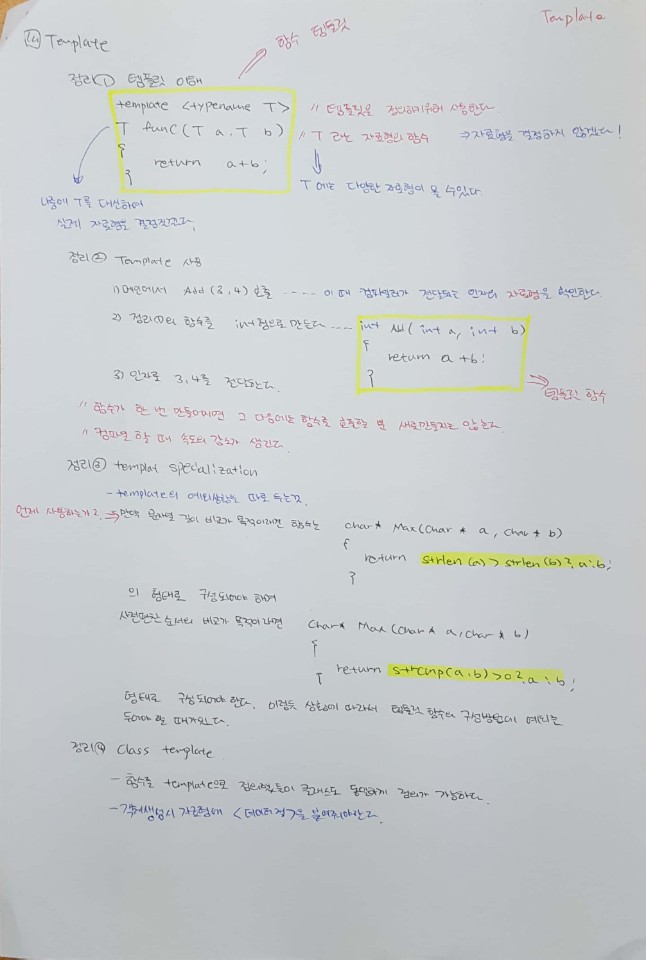 Template
14 Template
함수 템플릿
정리① 템플릿 이해
template <typename T> // 템플릿을 정의하기위해 사용한다
T func(T a, T b) // T 라는 자료형의 함수 ⇒자료형을 결정하지 않겠다!
{
return a+b;
}
T 에는 다양한 자료형이 올 수있다
나중에 T를 대신하여
실제 자료형을 결정짓는다.
정리② Template 사용
1) 메인에서 Add (3, 4) 호출 ---- 이 때 컴파일러가 전달되는 인자의 자료형을 확인한다.
2) 정리①의 함수를 int형으로 만든다 ---- int Add( int a, int b)
{
return a+b;
}
3) 인자로 3,4를 전달한다.
템플릿 함수
// 함수가 한 번 만들어지면 그 다음에는 함수를 호출할 때 새로만들지는 않는다.
// 컴파일 할 때 속도의 감소가 생긴다.
정리③ templat specialization
- template의 예외상황을 따로 두는것.
언제 사용하는가? ⇒ 만약 문자열 길이 비교가 목적이라면 함수는 char* Max(char * a, char * b)
{
return strlen(a) > strlen(b)? a : b;
}
의 형태로 구성되어야 하며
사전편찬 순서의 비교가 목적이라면 char* Max (char* a, char* b)
{
return strcmp(a,b)>0? a : b;
}
형태로 구성되어야 한다. 이렇듯 상황에 따라서 템플릿 함수의 구성방법에 예외를
두어야 할 때가있다.
정리④ class template
- 함수를 template으로 정의했듯이 클래스도 동일하게 정의가 가능하다.
- 객체생성시 자료형에 <데이터형>을 붙여줘야한다